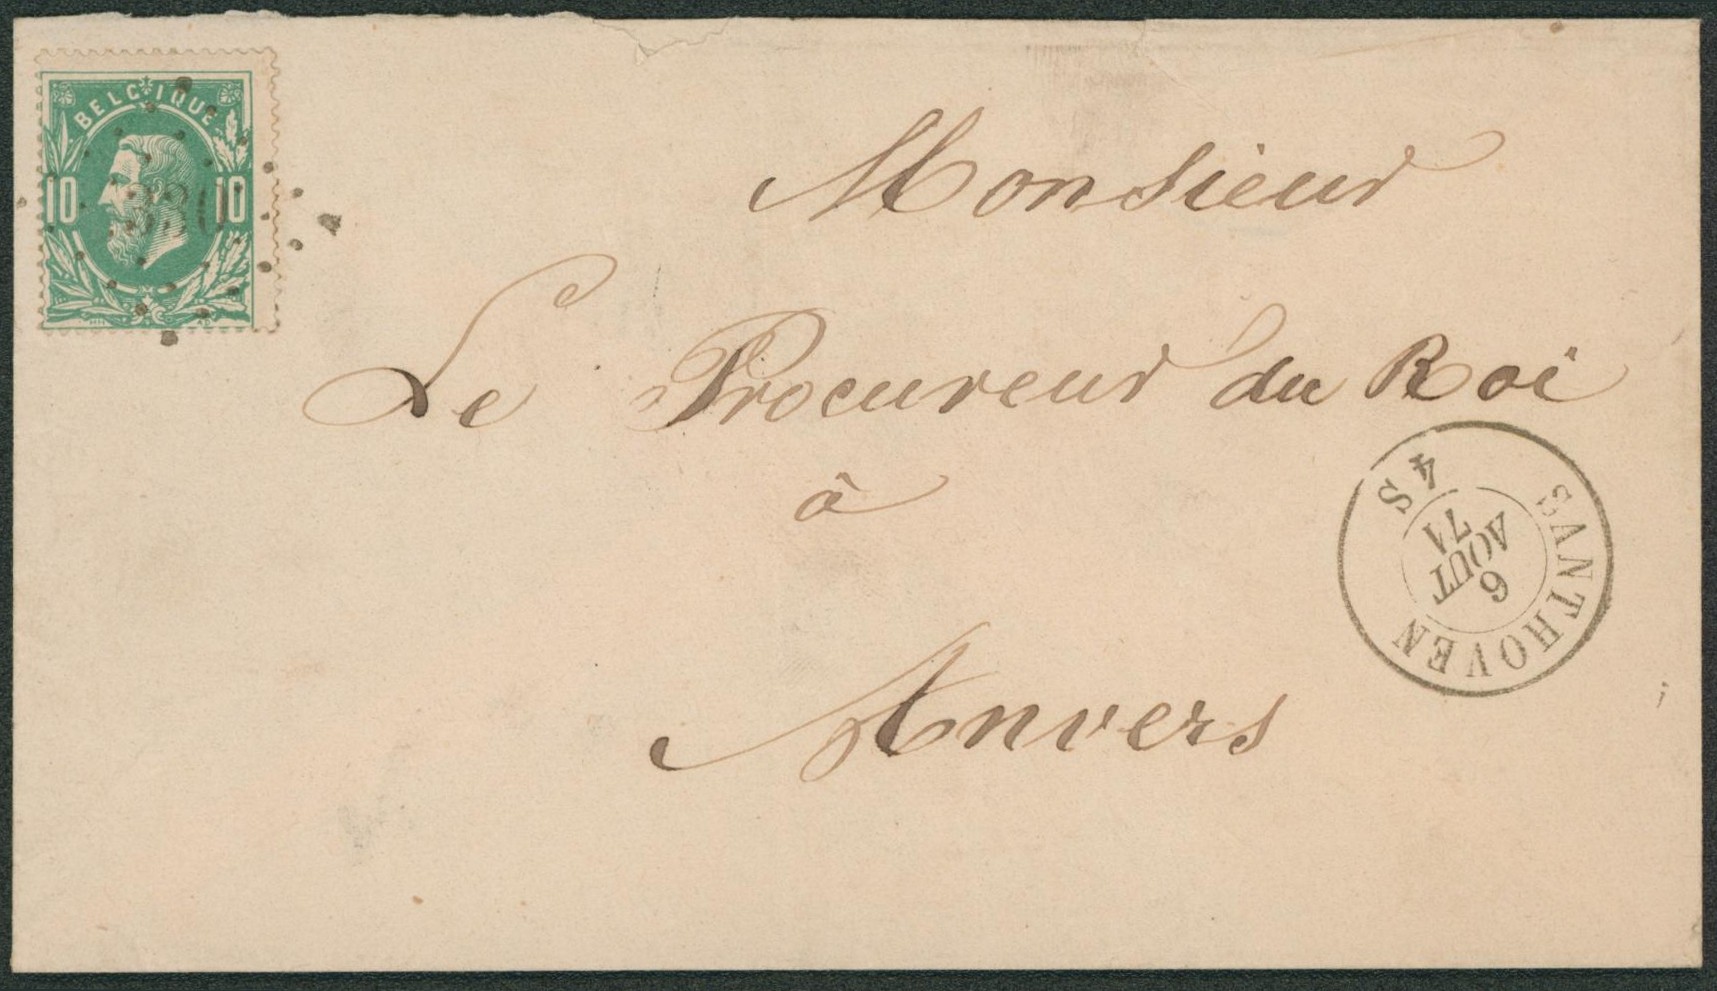 BELGIQUE
10 10
320
Monsieur
Le Procureur du Roi
à
Anvers
SANTHOVEN
6
AOUT
71
4 S